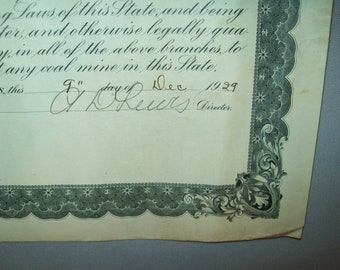 g Laws of this State, and being
ter, and otherwise legally qua-
y, in all of the above branches, to
t any coal mine in this State.
s, this 9" day of Dec 1929
Lewis Director.